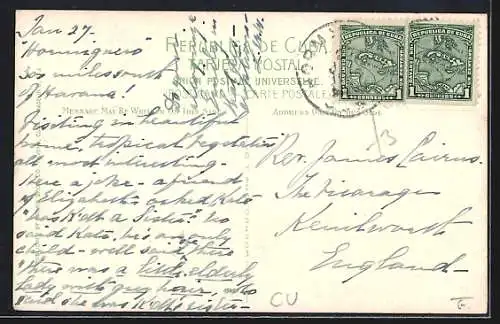 Jan 27.
"Hormiguero"
300 miles south
of Havana!
Visiting in beautiful
home, tropical vegetation
all most interesting.
Here a joke - a friend
of Elizabeth's asked Kate
"was K. oth a Sister" No
said Kate, he's an only
child - well said there
"there was a little elderly
lady with grey hair, who
said she was K. oth's sister -
REPÚBLICA DE CUBA
TARJETA POSTAL
UNION POSTALE UNIVERSELLE
CARTE POSTALE
MESSAGE MAY BE WRITTEN ON THIS SIDE
ADDRESS
REPUBLICA DE CUBA
1
REPUBLICA DE CUBA
1
Rev. James Cairns.
The Vicarage
Kenilworth
England
CU